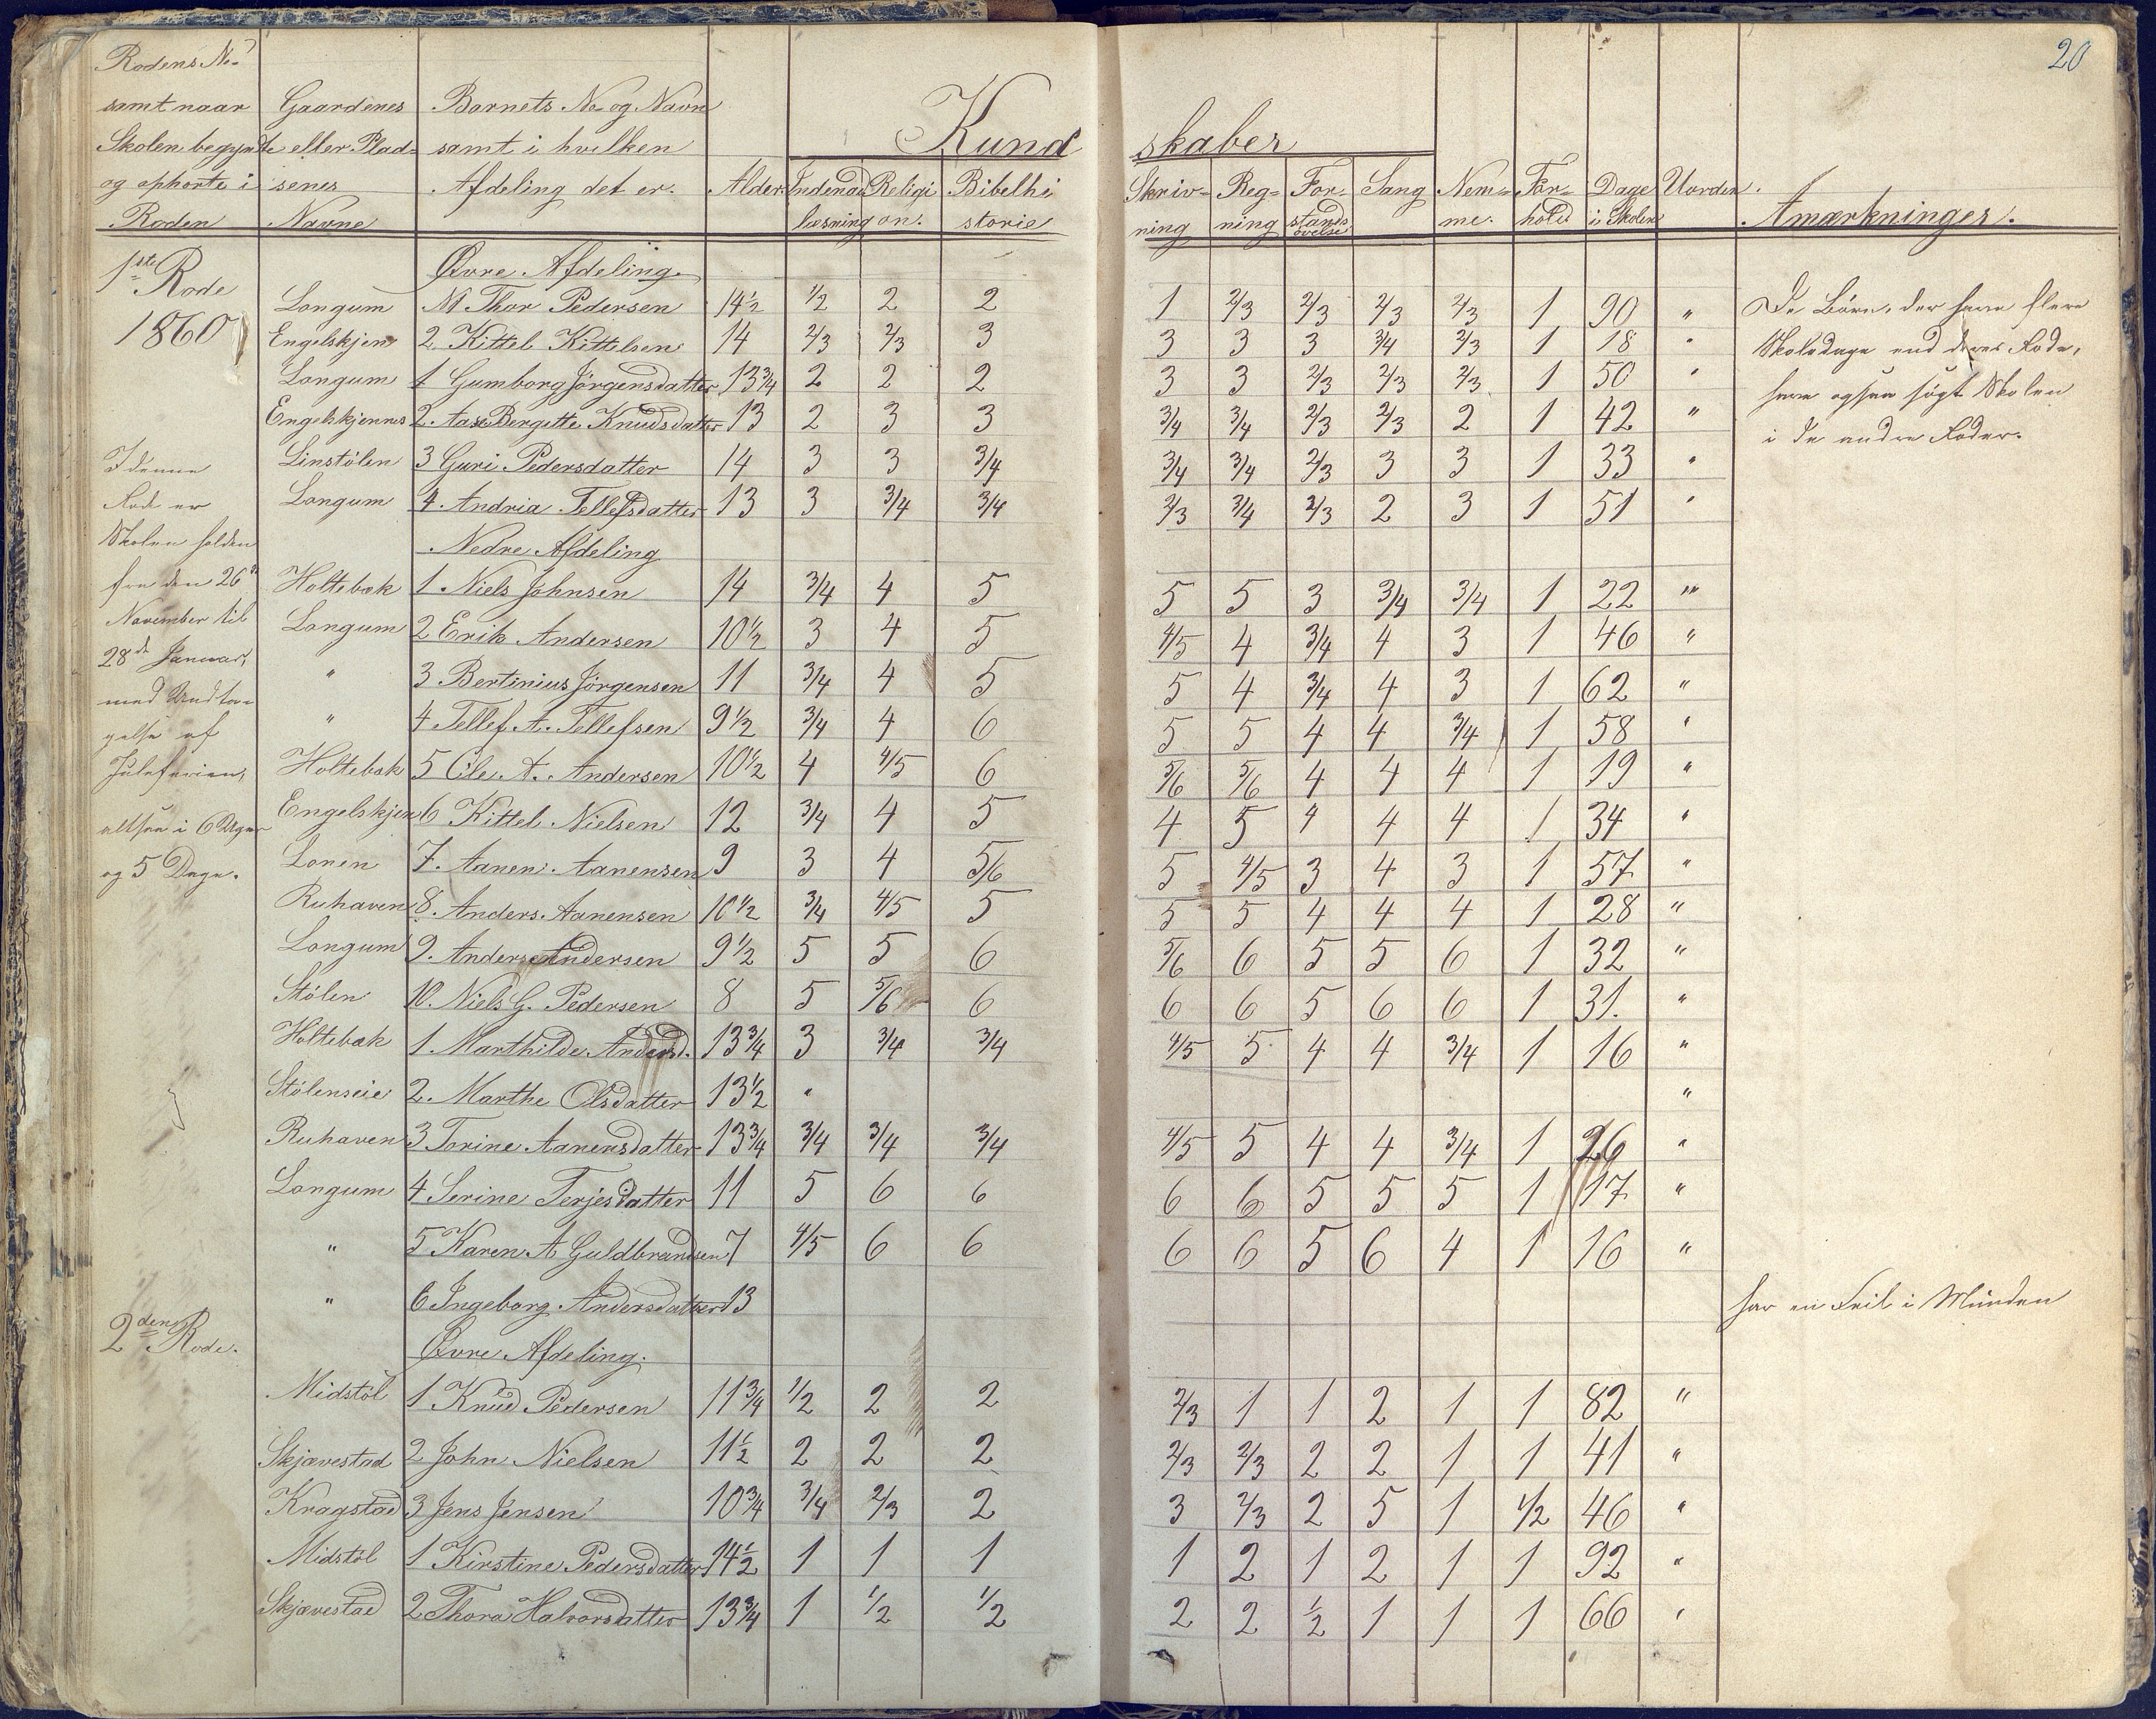 20
Rodens No
samt naar Gaardenes Barnets No og Navn
Skolen begyndte eller Plad= samt i hvilken Kund skaber
og ophørte i senes Afdeling det er. Alder Indenad Religi Bibelhi Skriv= Reg= For= Sang Nem= For= Dage Uorden.
Roden Navne læsning on. storie ning ning stands øvelse me. hold i Skolen Anmærkninger.
1ste Rode Øvre Afdeling.
1860 Longum N 1 Thor Pedersen 14 1/2 1/2 2 2 1 2/3 2/3 2/3 2/3 1 90 " De Børn, der have flere
Engelskjen 2 Kittel Kittelsen 14 2/3 2/3 3 3 3 3 3/4 2/3 1 18 " Skoledage end deres Rode,
Longum 1 Gumborg Jörgensdatter 13 3/4 2 2 2 3 3 2/3 2/3 2/3 1 50 " have ogsaa søgt Skolen
Engelskjennes 2. Aase Bergitte Knudsdatter 13 2 3 3 3/4 3/4 2/3 2/3 2 1 42 " i de andre Roder.
I denne Linstölen 3 Guri Pedersdatter 14 3 3 3/4 3/4 3/4 2/3 3 3 1 33 "
Rode er Longum 4. Andria Tellefsdatter 13 3 3/4 3/4 2/3 3/4 2/3 2 3 1 51 "
Skolen holden Nedre Afdeling
fra den 26de Holtebak 1 Niels Johnsen 14 3/4 4 5 5 5 3 3/4 3/4 1 22 "
November til Longum 2 Erik Andersen 10 1/2 3 4 5 4/5 4 3/4 4 3 1 46 "
28de Januar, " 3 Bertinius Jörgensen 11 3/4 4 5 5 4 3/4 4 3 1 62 "
med Undta= " 4 Tellef A. Tellefsen 9 1/2 3/4 4 6 5 5 4 4 3/4 1 58 "
gelse af
Juleferien, Holtebak 5 Ole A. Andersen 10 1/2 4 4/5 6 5/6 5/6 4 4 4 1 19 "
altsaa i 6 Uger Engelskjen 6 Kittel Nielsen 12 3/4 4 5 4 5 4 4 4 1 34 "
og 5 Dage. Lonen 7. Aanen Aanensen 9 3 4 5/6 5 4/5 3 4 3 1 57 "
Ruhaven 8. Anders Aanensen 10 1/2 3/4 4/5 5 5 5 4 4 4 1 28 "
Longum 9. Anders Andersen 9 1/2 5 5 6 5/6 6 5 5 6 1 32 "
Stölen 10. Niels G. Pedersen 8 5 5/6 6 6 6 5 6 6 1 31. "
Holtebak 1. Marthilde Andersd. 13 3/4 3 3/4 3/4 4/5 5 4 4 3/4 1 16 "
Stölenseie 2. Marthe Olsdatter 13 1/2 " "
Ruhaven 3 Torine Aanensdatter 13 3/4 3/4 3/4 3/4 4/5 5 4 4 3/4 1 26 "
Longum 4 Serine Terjesdatter 11 5 6 6 6 6 5 5 5 1 17 "
" 5 Karen A Guldbrandsen 7 4/5 6 6 6 6 5 6 4 1 16 "
" 6 Ingeborg Andersdatter 13 har en Feil i Munden
2den Rode. Øvre Afdeling.
Midstöl 1 Knud Pedersen 11 3/4 1/2 2 2 2/3 1 1 2 1 1 82 "
Skjævestad 2 John Nielsen 11 1/2 2 2 2 2/3 2/3 2 2 1 1 41 "
Kragstad 3 Jens Jensen 10 3/4 3/4 2/3 2 3 2/3 2 5 1 1/2 46 "
Midstöl 1 Kirstine Pedersdatter 14 1/2 1 1 1 1 2 1 2 1 1 92 "
Skjævestad 2 Thora Halvorsdatter 13 3/4 1 1/2 1/2 2 2 1/2 1 1 1 66 "